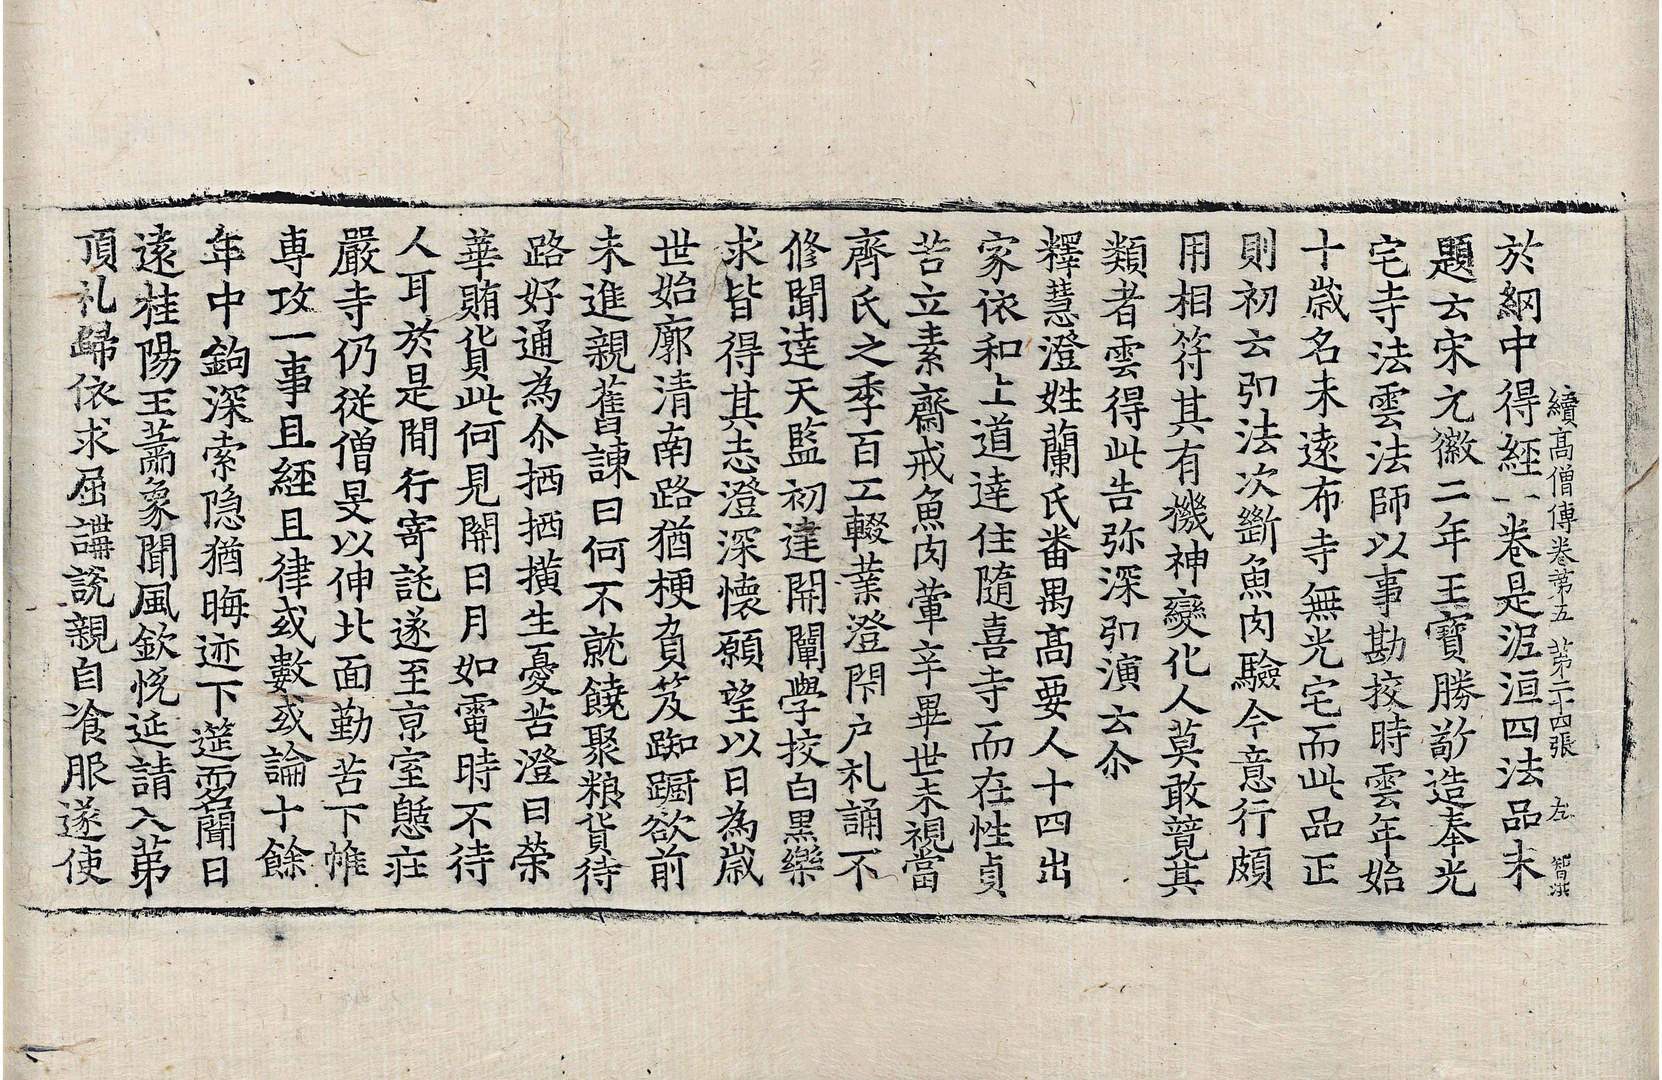 續高僧傳卷第五 第二十四張 左 智洪
於網中得經一卷是泥洹四法品末
題云宋元徽二年王寶勝敬造奉光
宅寺法雲法師以事勘挍時雲年始
十歲名未遠布寺無光宅而此品正
則初云弘法次斷魚肉驗今意行頗
用相符其有機神變化人莫敢競其
類者雲得此告弥深弘演云尒
釋慧澄姓蘭氏番禺髙要人十四出
家依和上道達住隨喜寺而在性貞
苦立素齋戒魚肉葷辛畢世未視當
齊氏之季百工輟業澄閇户札誦不
修聞達天監初達開闡學挍白黒樂
求皆得其志澄深懷願望以日為歲
世始廓清南路猶梗負笈踟蹰欲前
未進親舊諫曰何不就饒聚粮貨待
路好通為尒栖栖撗生憂苦澄曰榮
華賄貨此何見關日月如電時不待
人耳於是間行寄託遂至京室憩莊
嚴寺仍從僧旻以伸北面勤苦下帷
専攻一事且經且律或數或論十餘
年中鉤深索隐猶晦迹下筵而名聞日
遠桂陽王蕭象聞風欽悦延請入第
頂礼歸依求屈講説親自飡服遂使